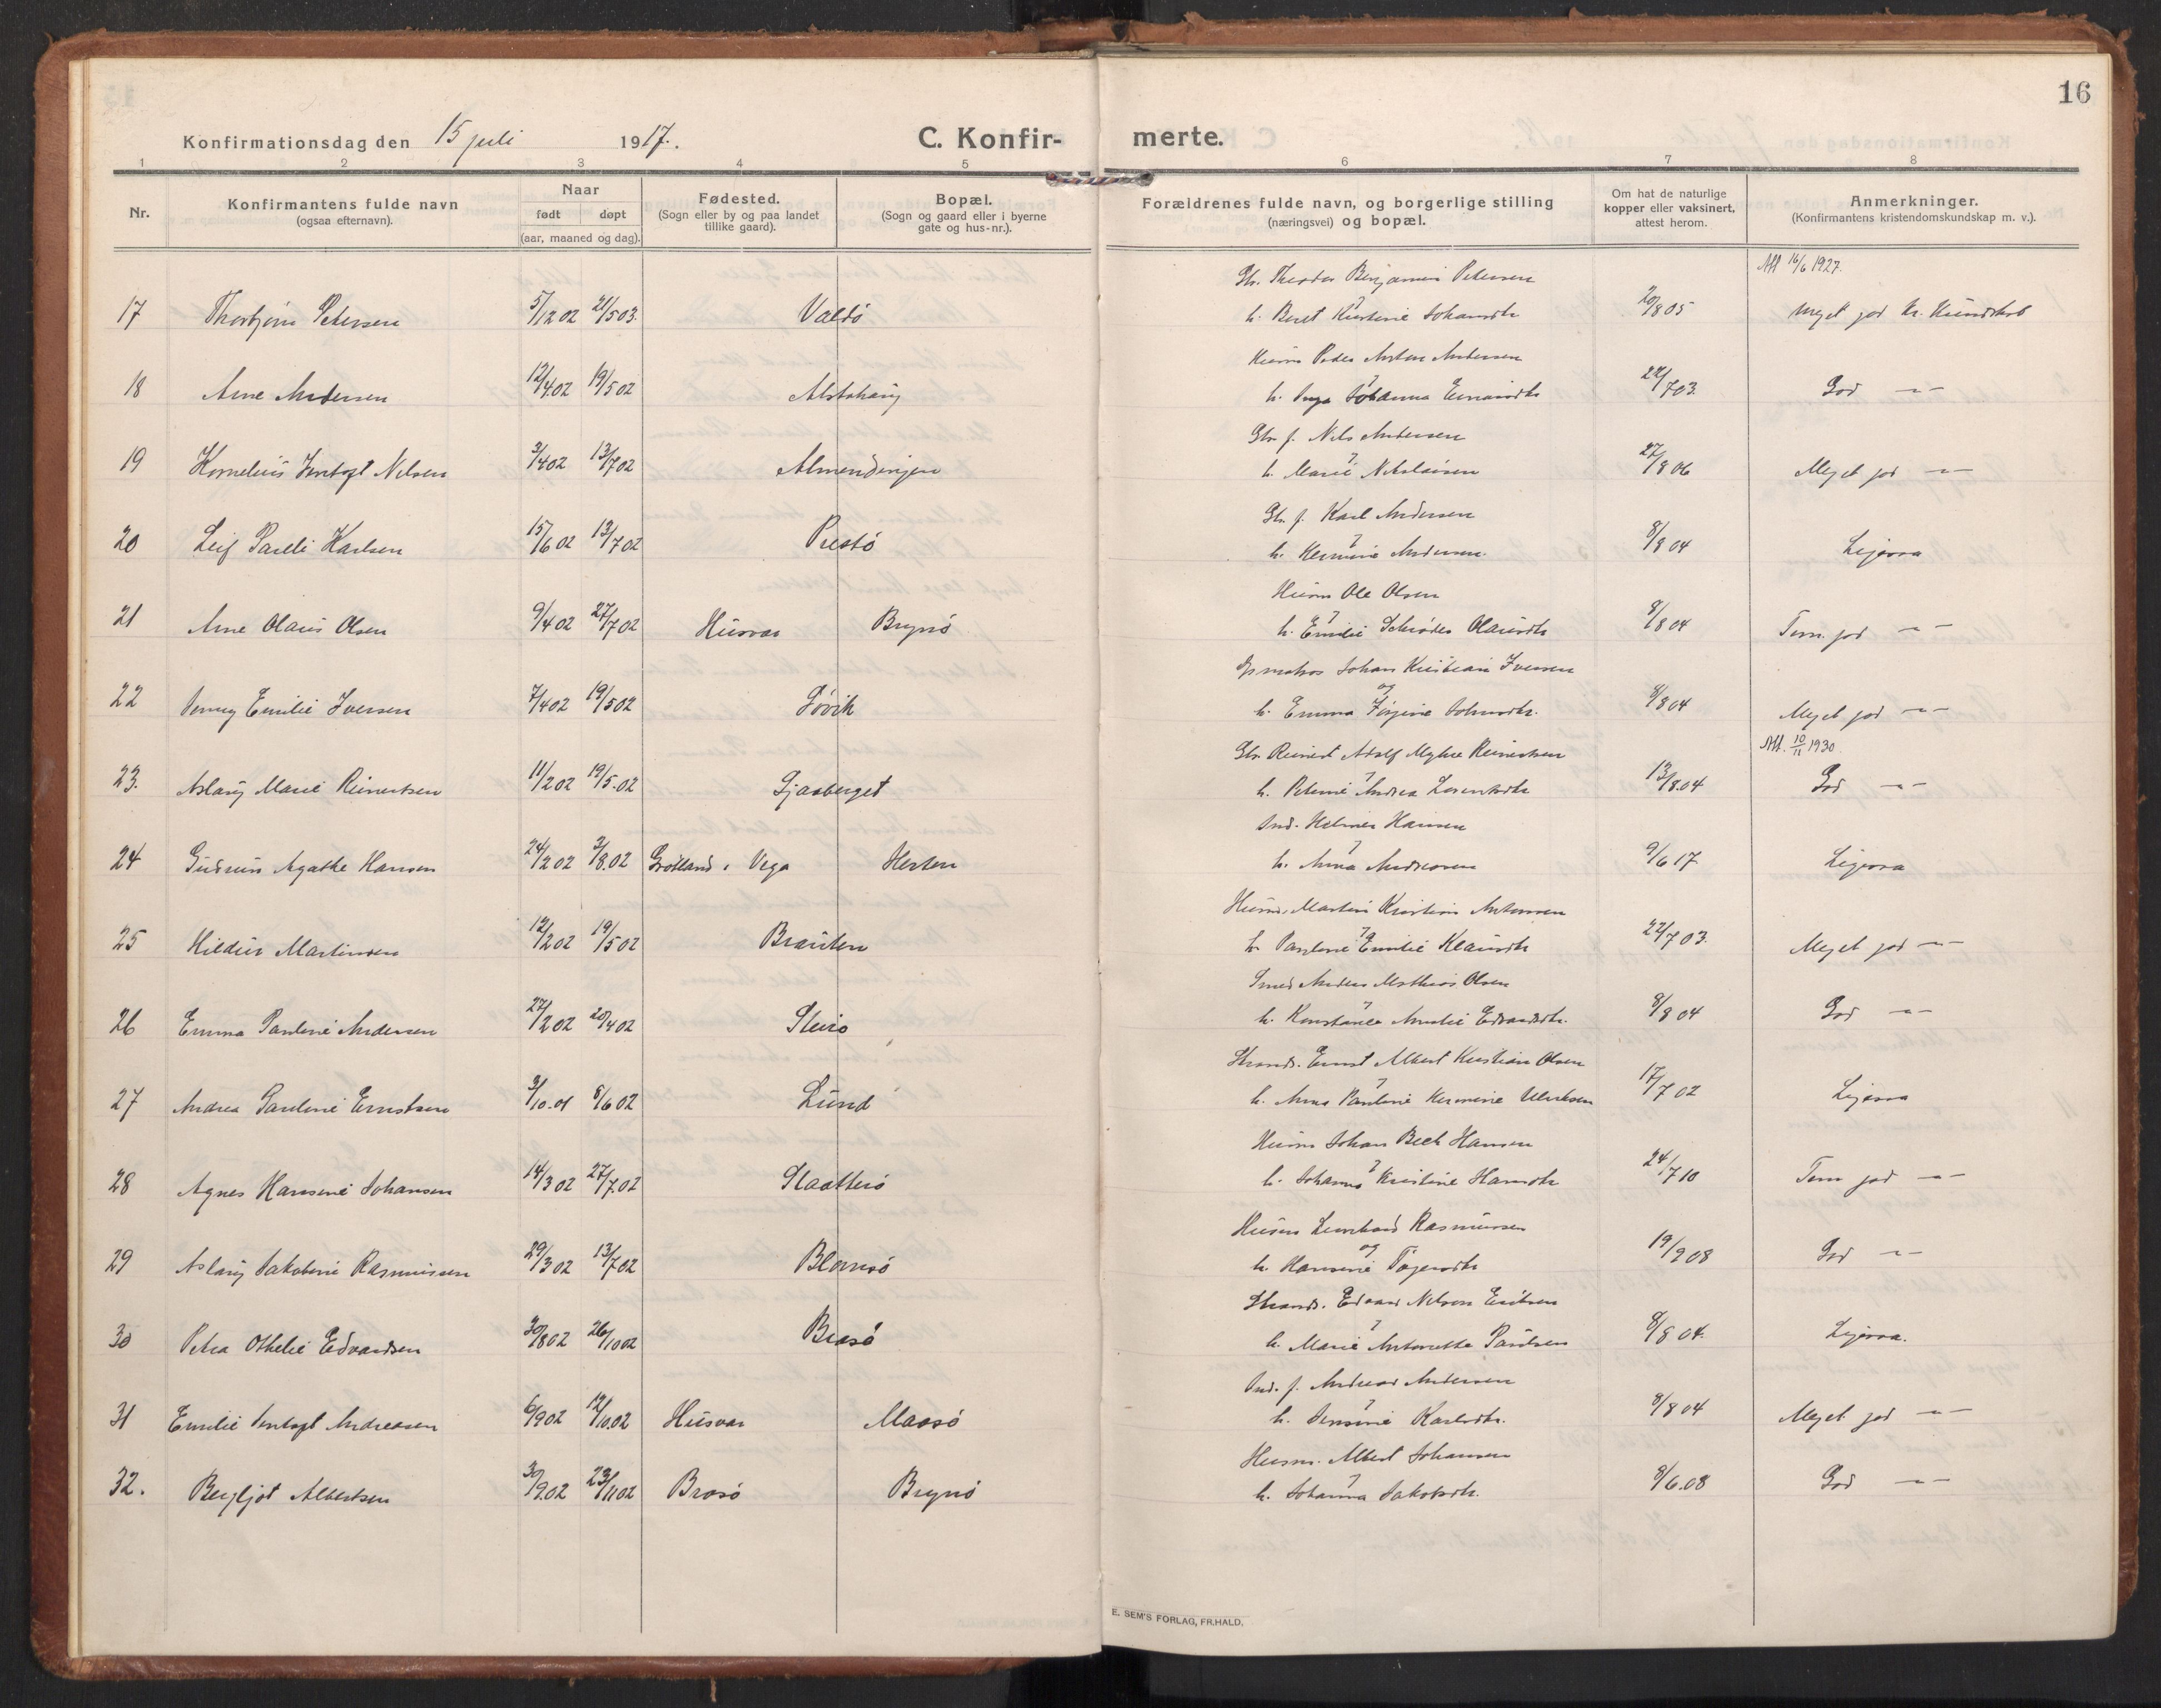 16
Konfirmationsdag den 15 juli 1917.
C. Konfir- merte.
1 2 3 4 5 6 7 8
Nr.
Konfirmantens fulde navn
(ogsaa efternavn).
Naar
født døpt
(aar, maaned og dag).
Fødested.
(Sogn eller by og paa landet
tillike gaard).
Bopæl.
(Sogn og gaard eller i byerne
gate og hus-nr.).
Forældrenes fulde navn, og borgerlige stilling
(næringsvei) og bopæl.
Om hat de naturlige
kopper eller vaksinert,
attest herom.
Anmerkninger.
(Konfirmantens kristendomskundskap m. v.).
Theodor Benjamin Petersen Att 16/6 1927.
17 Thorbjørn Petersen 5/12 02 21/5 03. Valdø h. Beret Kirstine Johansdtr 20/8 05 Meget god Kr. Kundskab
Husm Peder Anton Andersen
18 Arne Andersen 12/4 02 19/5 02 Alstahaug h. Inga Johanna 22/7 03. God — " —
Gbr. f. Nils Andersen
19 Kornelius Jentoft Nilsen 3/4 02 13/7 02 Almendingen h. Marie Nikolaisen 27/8 06 Meget god — " —
Gbr. f. Karl Andersen
20 Leif Pareli Karlsen 15/6 02 13/7 02 Prestø h. Hermine Andersen. 8/8 04 Ligesaa
Husm Ole Olsen
21 Arne Olaus Olsen 9/4 02 27/7 02 Husvær Brynø h. Emilie Schrøder Olausdtr 8/8 04 Tem. god — " —
Johan Kristian Iversen
og
22 Jenny Emilie Iversen 7/4 02 19/5 02 Søvik h. Emma Jørgine 8/8 04 Meget god — " —
Gbr. Reinert Adolf Myhre Reinertsen Att. 10/11 1930.
23. Aslaug Marie Reinertsen 11/2 02 19/5.02 Gjasberget h. Petrine Andrea Lorentsdtr 13/8.04 God — " —
Ind. Helmer Hansen
24 Gudrun Agathe Hansen 24/2 02 3/8.02 Grøtland i Vega Herten h. Anna Andreasen 9/6 17 Ligesaa
Husm. Martin Kristian Antonsen
25 Hildur Martinsen 12/2 02 19/5 02 Brauten h. Pauline Emilie Klausdtr 22/7 03. Meget god — " —
Smed Anders Mathias Olsen
26 Emma Pauline Andersen 27/2 02 20/4 02 Steiro h. Konstance Amalie Edvardsdtr. 8/8 04 God — " —
Strands. Ernst Albert Kristian Olsen
27 Andrea Pauline Ernstsen 3/10.01 8/6 02 Lund h. Anna Pauline Hermine Ulriksen 17/7 02 Ligesaa
Husm Johan Beck Hansen
28 Agnes Hansine Johansen 14/3 02 27/7.02 Slaatterø h. Johanna Kristine Hansdtr 24/7 10 Tem god — " —
Husm Leonhard Rasmussen
og
29 Aslaug Jakobine Rasmussen 29/3 02 13/7 02 Blomsø h. Hansine 19/9 08 God — " —
Strands. Edvard Nelson Eriksen
30 Petra Othelie Edvardsen 30/8 02 26/10 02 Brasø h. Marie Antonette Paulsen 8/8 04. Ligesaa.
Ind. f. Andreas Andersen
31 Emilie Jentoft Andreasen 6/9 02 12/10.02 Husvær Maasø h. Jensine Karlsdtr. 8/8 04 Meget god — " —
Husm. Albert Johansen
32. Bergljot Albertsen 30/9.02 23/11 02 Brasø Brynø h. Johanna Jakobsdtr. 8/6.08 God — " —
E. SEM'S FORLAG, FR.HALD.